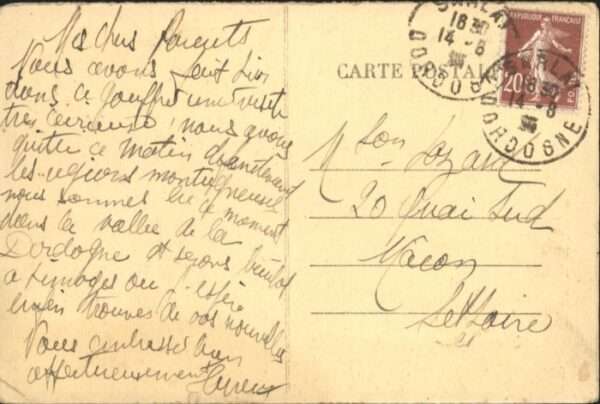 Mes chers Parents
Nous avons fait hier
dans ce gouffre une visite
très curieuse, nous avons
quitté ce matin
les régions montagneuses
nous sommes en ce moment
dans la vallée de la
Dordogne et serons bientôt
a Limoges ou j'espère
bien trouver de vos nouvelles
Vous embrasse bien
affectueusement
CARTE POSTALE
SARLAT
18 30
14 - 8
DORDOGNE
REPUBLIQUE FRANÇAISE
20c
POSTES
SARLAT
18 30
14 - 8
DORDOGNE
M
20 Quai Sud
Macon
S et Loire